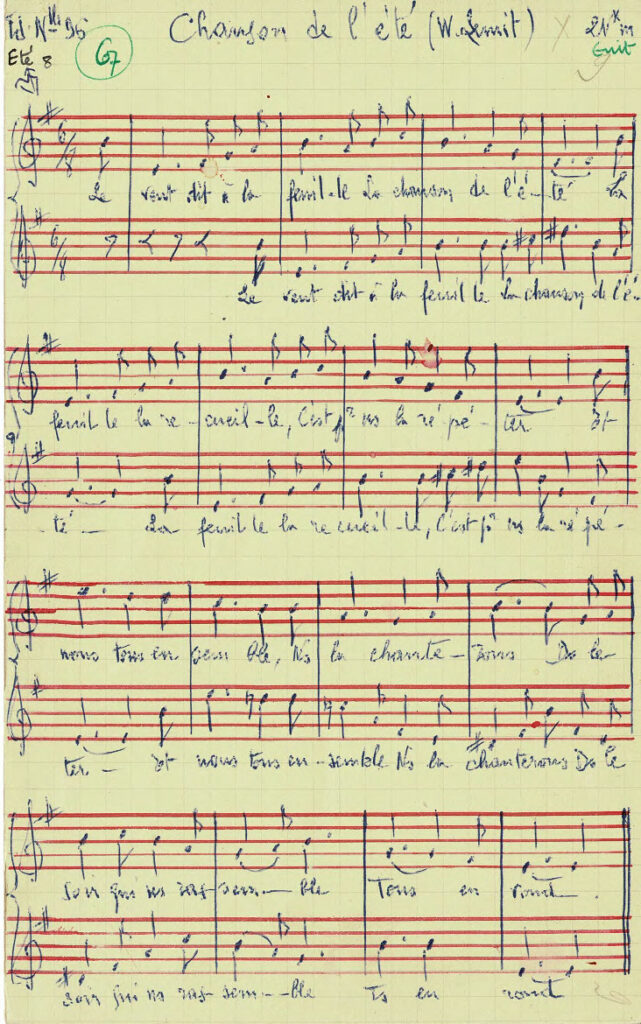 Chanson de l'été (W. Lemit) X
Eté 8
67
6/8
Le vent dit à la feuil-le La chanson de l'é-té La
6/8
Le vent dit à la feuil le La chanson de l'é-
feuil le la re-cueil-le, C'est pr ns la ré pé-ter Et
té - La feuil le la re cueil-le, C'est pr ns la ré pé-
nous tous en sem ble, Ns la chante-rons De le
ter - Et nous tous en-semble Ns la chanterons De le
Soir qui ns ras-sem-ble Tous en rond
Soir qui ns ras-sem-ble Ts en rond